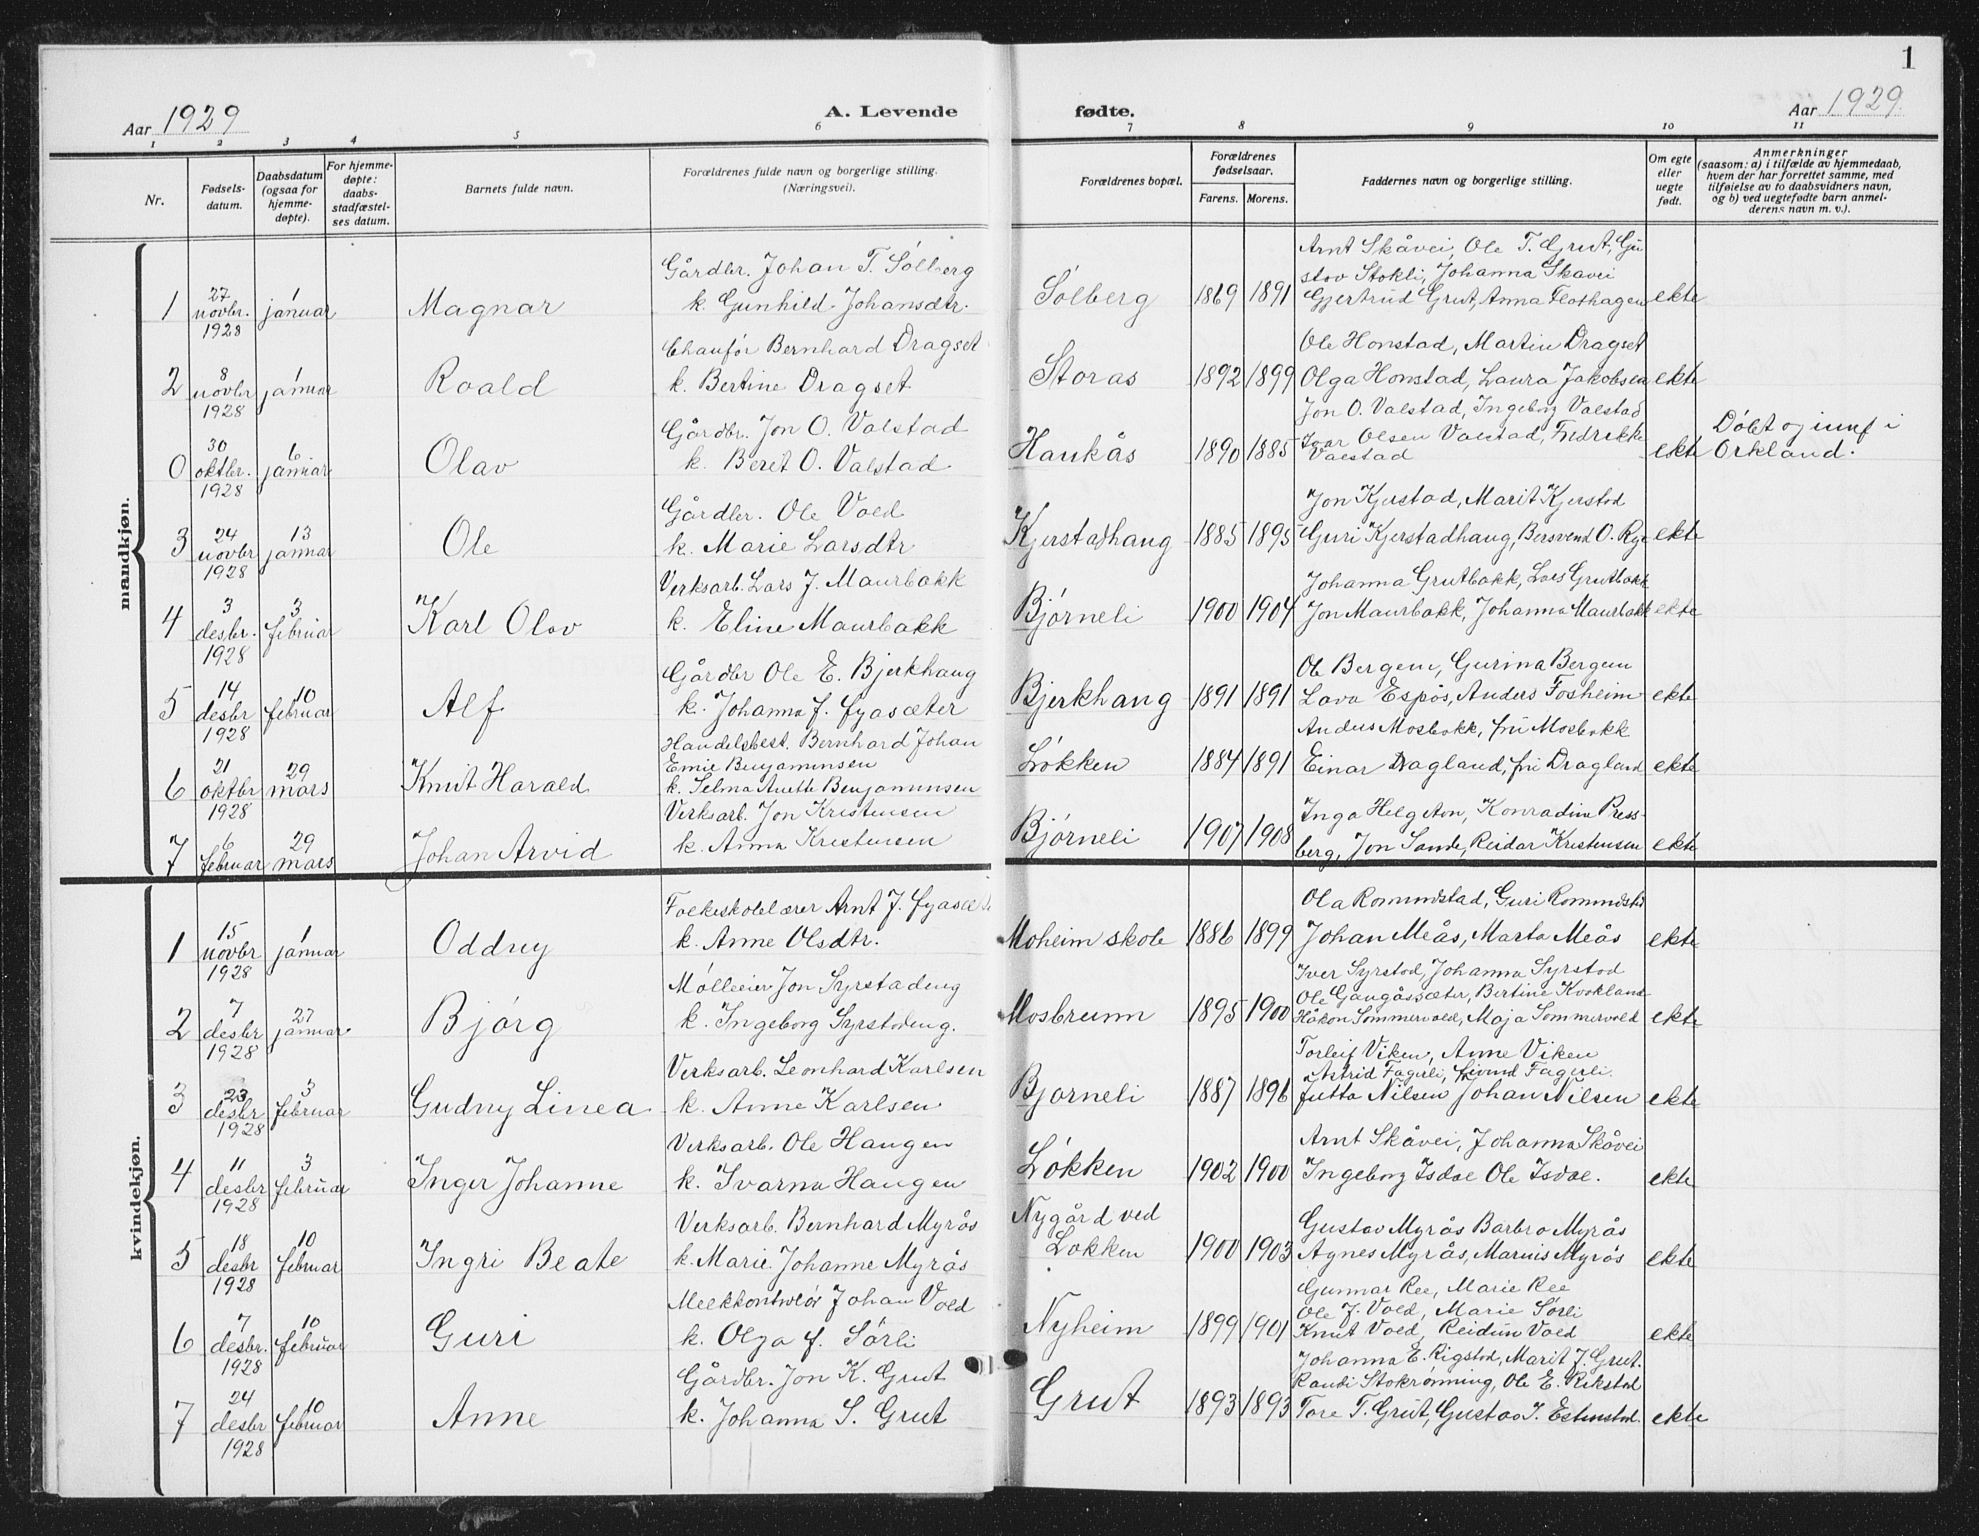 1
Aar 1929
A. Levende fødte.
Aar 1929.
1 2 3 4 5 6 7 8 9 10 11
Nr.
Fødsels-
datum.
Daabsdatum
(ogsaa for
hjemme-
døpte).
For hjemme-
døpte:
daabs-
stadfæstel-
ses datum.
Barnets fulde navn.
Forældrenes fulde navn og borgerlige stilling.
(Næringsvei).
Forældrenes bopæl.
Forældrenes
fødselsaar.
Farens. Morens.
Faddernes navn og borgerlige stilling.
Om egte
eller
uegte
født.
Anmerkninger
(saasom: a) i tilfælde av hjemmedaab,
hvem der har forrettet samme, med
tilføielse av to daabsvidners navn,
og b) ved uegtefødte barn anmel-
derens navn m. v.).
mandkjøn.
1
27
novbr.
1928
1
januar
Magnar
Gårdbr. Johan T. Solberg
k. Gunhild Johansdtr.
Solberg
1869 1891
Arnt Skåvei, Ole T. Grut, Gu
stav Stokli, Johanna Skavei
Gjertrud Grut, Anna Flothagen
ekte
2
8
novbr
1928
1
januar
Roald
Chaufør Bernhard Dragset
k. Bertine Dragset
Storas
1892 1899
Ole Honstad, Martin Dragset
Olga Honstad, Laura Jakobsen
ekte
0
30
oktbr.
1928
6
januar
Olav
Gårdbr. Jon O. Valstad
k. Beret O. Valstad
Haukås
1890 1885
Jon O. Valstad, Ingeborg Valstad
Ivar Olsen Valstad, Fredrikke
Valstad
ekte
Døbt og innf i
Orkland.
3
24
novbr
1928
13
januar
Ole
Gårdbr. Ole Vold
k. Marie Larsdtr
Kjerstadhaug
1885 1895
Jon Kjerstad, Marit Kjerstad
Guri Kjerstadhaug, Bersvend O. Rye
ekte
4
3
desbr.
1928
3
februar
Karl Olav
Verksarb. Lars J. Maurbakk
k. Eline Maurbakk
Bjørneli
1900 1904
Johanna Grutbakk, Lars Grutbakk
Jon Maurbakk, Johanna Maurbakk
ekte
5
14
desbr
1928
10
februar
Alf
Gårdbr Ole E. Bjerkhaug
k. Johanna f. Fyasæter
Bjerkhaug
1891 1891
Ole Bergem, Gurina Bergem
Lava Espås, Anders Fosheim
ekte
6
21
oktbr
1928
29
mars
Knut Harald
Handelsbest. Bernhard Johan
Emil Benjaminsen
k. Selma Anette Benjaminsen
Løkken
1884 1891
Anders Mosbakk, fru Mosbakk
Einar Dragland, fru Dragland
ekte
7
6
februar
29
mars
Johan Arvid
Verksarb. Jon Kristensen
k. Anna Kristensen
Bjørneli
1907 1908
Inga Helgeton, Konradina Press-
berg, Jon Sande, Reidar Kristensen
ekte
kvindekjøn.
1
15
novbr
1928
1
januar
Oddny
Folkeskolelærer Arnt J. Fyasæter
k. Anne Olsdtr.
Moheim skole
1886 1899
Ola Romundstad, Guri Romundstad
Johan Meås, Marta Meås
ekte
2
7
desbr
1928
27
januar
Bjørg
Mølleeier Jon Syrstadeng
k. Ingeborg Syrstadeng.
Mosbrunn
1895 1900
Iver Syrstad, Johanna Syrstad
Ole Gangåssæter, Bertine Kvakland
Håkon Sommervold, Maja Sommervold
ekte
3
23
desbr
1928
3
februar
Gudny Linea
Verksarb. Leonhard Karlsen
k. Anne Karlsen
Bjørneli
1887 1896
Torleif Viken, Anne Viken
Astrid Fagerli, Eivind Fagerli.
Jutta Nilsen Johan Nilsen
ekte
4
11
desbr
1928
3
februar
Inger Johanne
Verksarb. Ole Haugen
k. Ivarna Haugen
Løkken
1902 1900
Arnt Skåvei, Johanna Skåvei
Ingeborg Isdal Ole Isdal.
ekte
5
18
desbr
1928
10
februar
Ingri Beate
Verksarb. Bernhard Myrås
k. Marie Johanne Myrås
Nygård ved
Løkken
1900 1903
Gustav Myrås Barbro Myrås
Agnes Myrås, Marius Myrås
ekte
6
7
desbr.
1928
10
februar
Guri
Melkkontrolør Johan Vold
k. Olga f. Sørli
Nyheim
1899 1901
Gunnar Ree, Marie Ree
Ole J. Vold, Marie Sørli
Knut Vold, Reidun Vold
ekte
7
24
desbr
1928
10
februar
Anne
Gårdbr. Jon K. Grut
k. Johanna S. Grut
Grut
1893 1893
Johanna E. Rigstad, Marit J. Grut.
Randi Stokrønning, Ole E. Rikstad
Tore T. Grut, Gustav J. Estenstad.
ekte